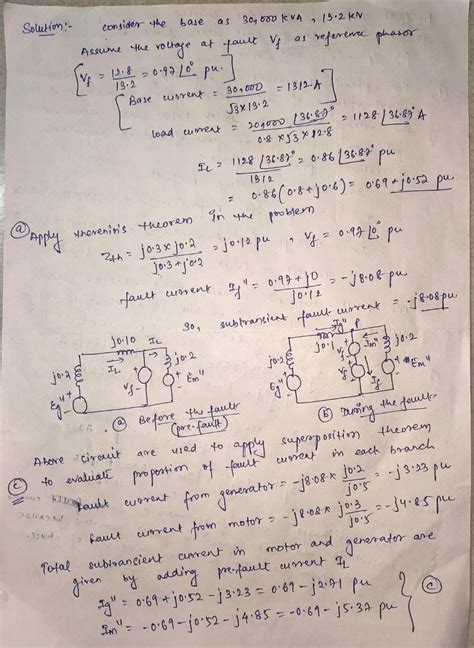 Solution:- consider the base as 30,000 KVA, 13.2 KV
Assume the voltage at fault Vf as reference phasor
[Vf = 12.8/13.2 = 0.97∠0° pu.]
[Base current = 30,000/(√3×13.2) = 1312 A]
load current = 20,000∠36.87°/(0.8×√3×12.8) = 1128∠36.87° A
IL = 1128∠36.87°/1312 = 0.86∠36.87° pu
= 0.86(0.8+j0.6) = 0.69+j0.52 pu
(a) Apply thevenin's theorem in the problem
Zth = (j0.3×j0.2)/(j0.3+j0.2) = j0.12 pu, Vf = 0.97∠0° pu
fault current If" = (0.97+j0)/j0.12 = -j8.08 pu
So, subtransient fault current = -j8.08pu
j0.10
IL
IL
j0.2
j0.2
Eg"
Vf
+
-
Em"
(a) Before the fault
(pre-fault)
Ig"
P
j0.1
Im"
j0.2
j0.2
Vf
Vf
If"
Eg"
Em"
(b) During the fault
Above circuit are used to apply superposition theorem
(c) to evaluate proportion of fault current in each branch
fault current from generator = -j8.08× j0.2/j0.5 = -j3.23 pu
fault current from motor = -j8.08× j0.3/j0.5 = -j4.85 pu
Total subtransient current in motor and generator are
given by adding pre-fault current IL
Ig" = 0.69+j0.52-j3.23 = 0.69-j2.71 pu
Im" = -0.69-j0.52-j4.85 = -0.69-j5.37 pu } (c)